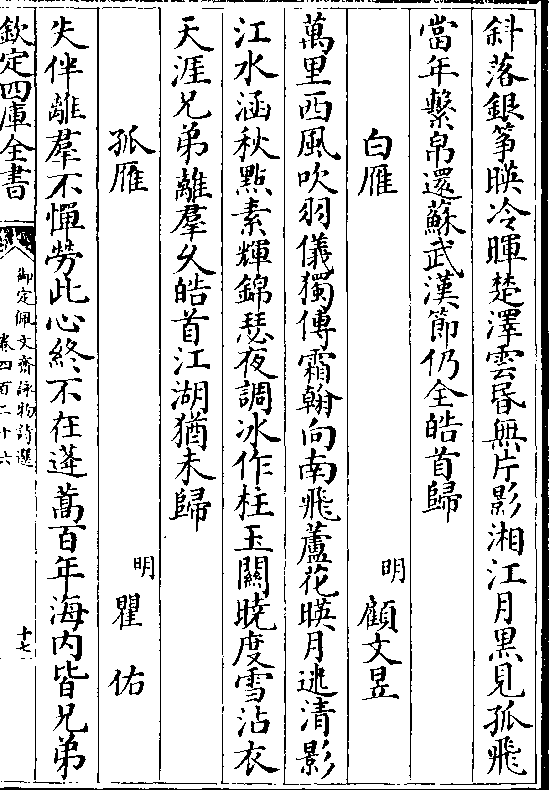 斜落銀筝暎冷暉楚澤雲昬無片影湘江月黒見孤飛
當年繫帛還蘇武漢節仍全皓首歸
白雁 明 顧文昱
萬里西風吹羽儀獨傳霜翰向南飛蘆花暎月迷清影
江水涵秋點素輝錦瑟夜調冰作柱玉關曉度雪沾衣
天涯兄弟離羣乆皓首江湖猶未歸
孤雁 明 瞿佑
失伴離羣不憚勞此心終不在蓬蒿百年海内皆兄弟
欽定四庫全書
御定佩文齋詠物詩選
卷四百二十六
十七